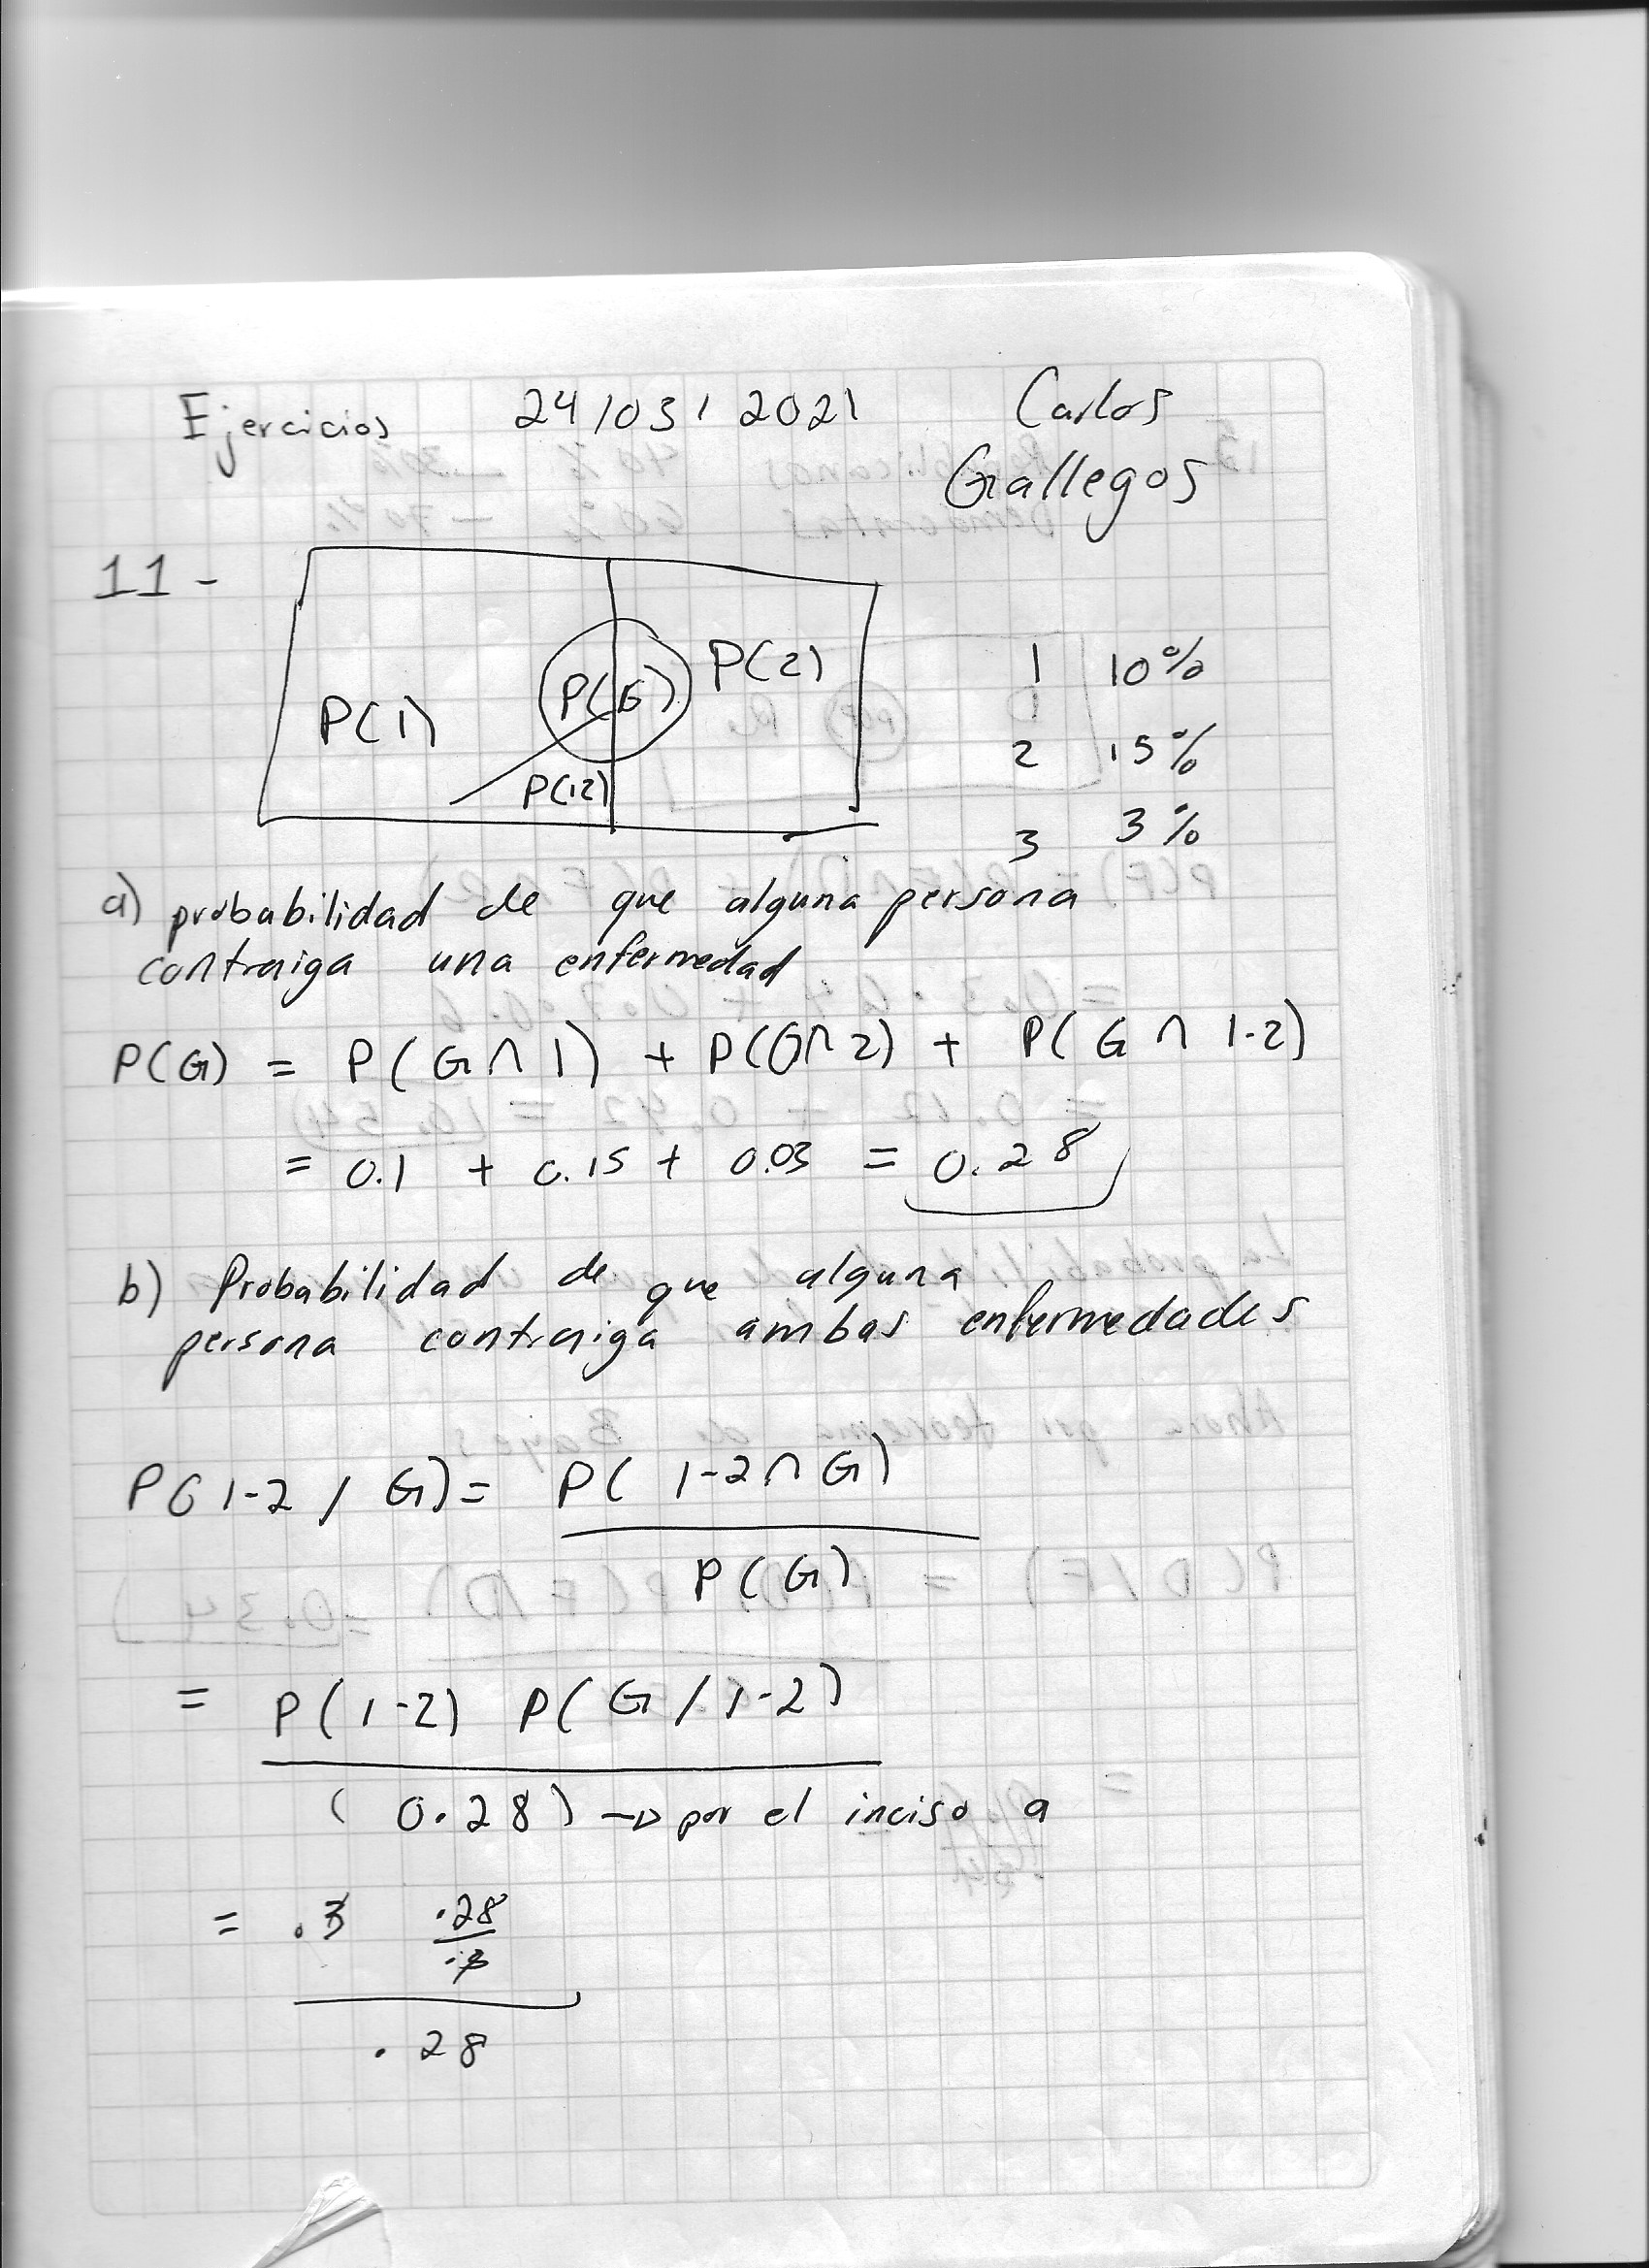 Ejercicios 24/03/2021 Carlos
Gallegos
11-
P(1) P(G) P(2)
P(12)
1 10%
2 15%
3 3%
a) probabilidad de que alguna persona
contraiga una enfermedad
P(G) = P(G∩1) + P(G∩2) + P(G ∩ 1-2)
= 0.1 + 0.15 + 0.03 = 0.28
b) Probabilidad de que alguna
persona contraiga ambas enfermedades
P(1-2 / G) = P(1-2∩G)
P(G)
= P(1-2) P(G/1-2)
(0.28) → por el inciso a
= .3 .28
.3
.28